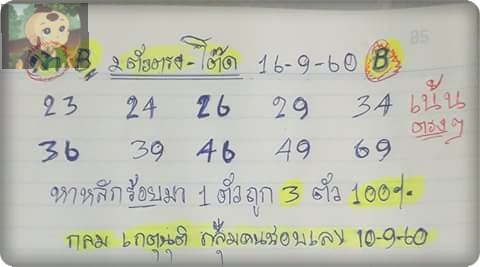 B 2ตัวตรง-โต๊ด 16-9-60 B
23 24 26 29 34 เน้น
36 39 46 49 69 ตรงๆ
หาหลักร้อยมา 1 ตัวถูก 3 ตัว 100%
กลม เกตุนุติ กลุ่มคนชอบเลข 10-9-60